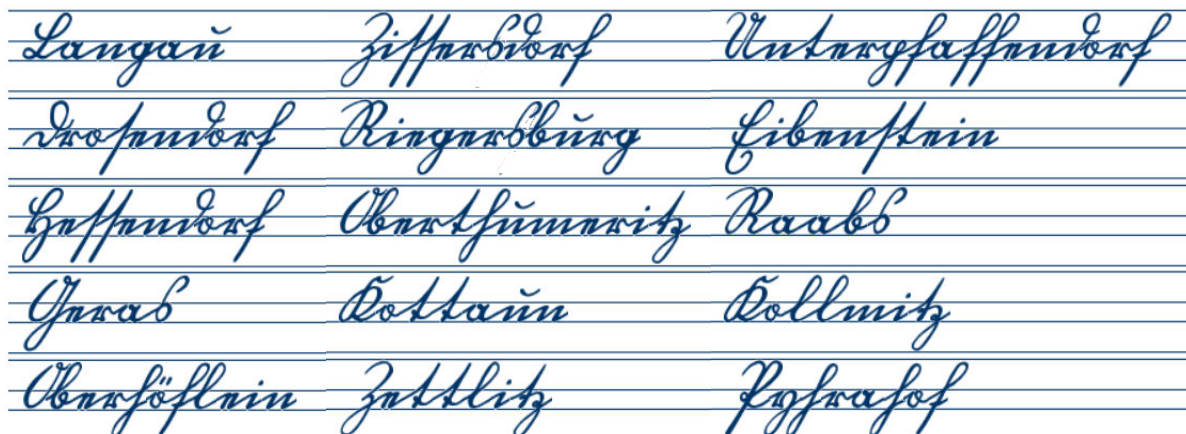 Langau Zissersdorf Unterpfaffendorf
Drosendorf Riegersburg Eibenstein
Hessendorf Oberthumeritz Raabs
Geras Kottaun Kollmitz
Oberhöflein Zettlitz Pyhrahof